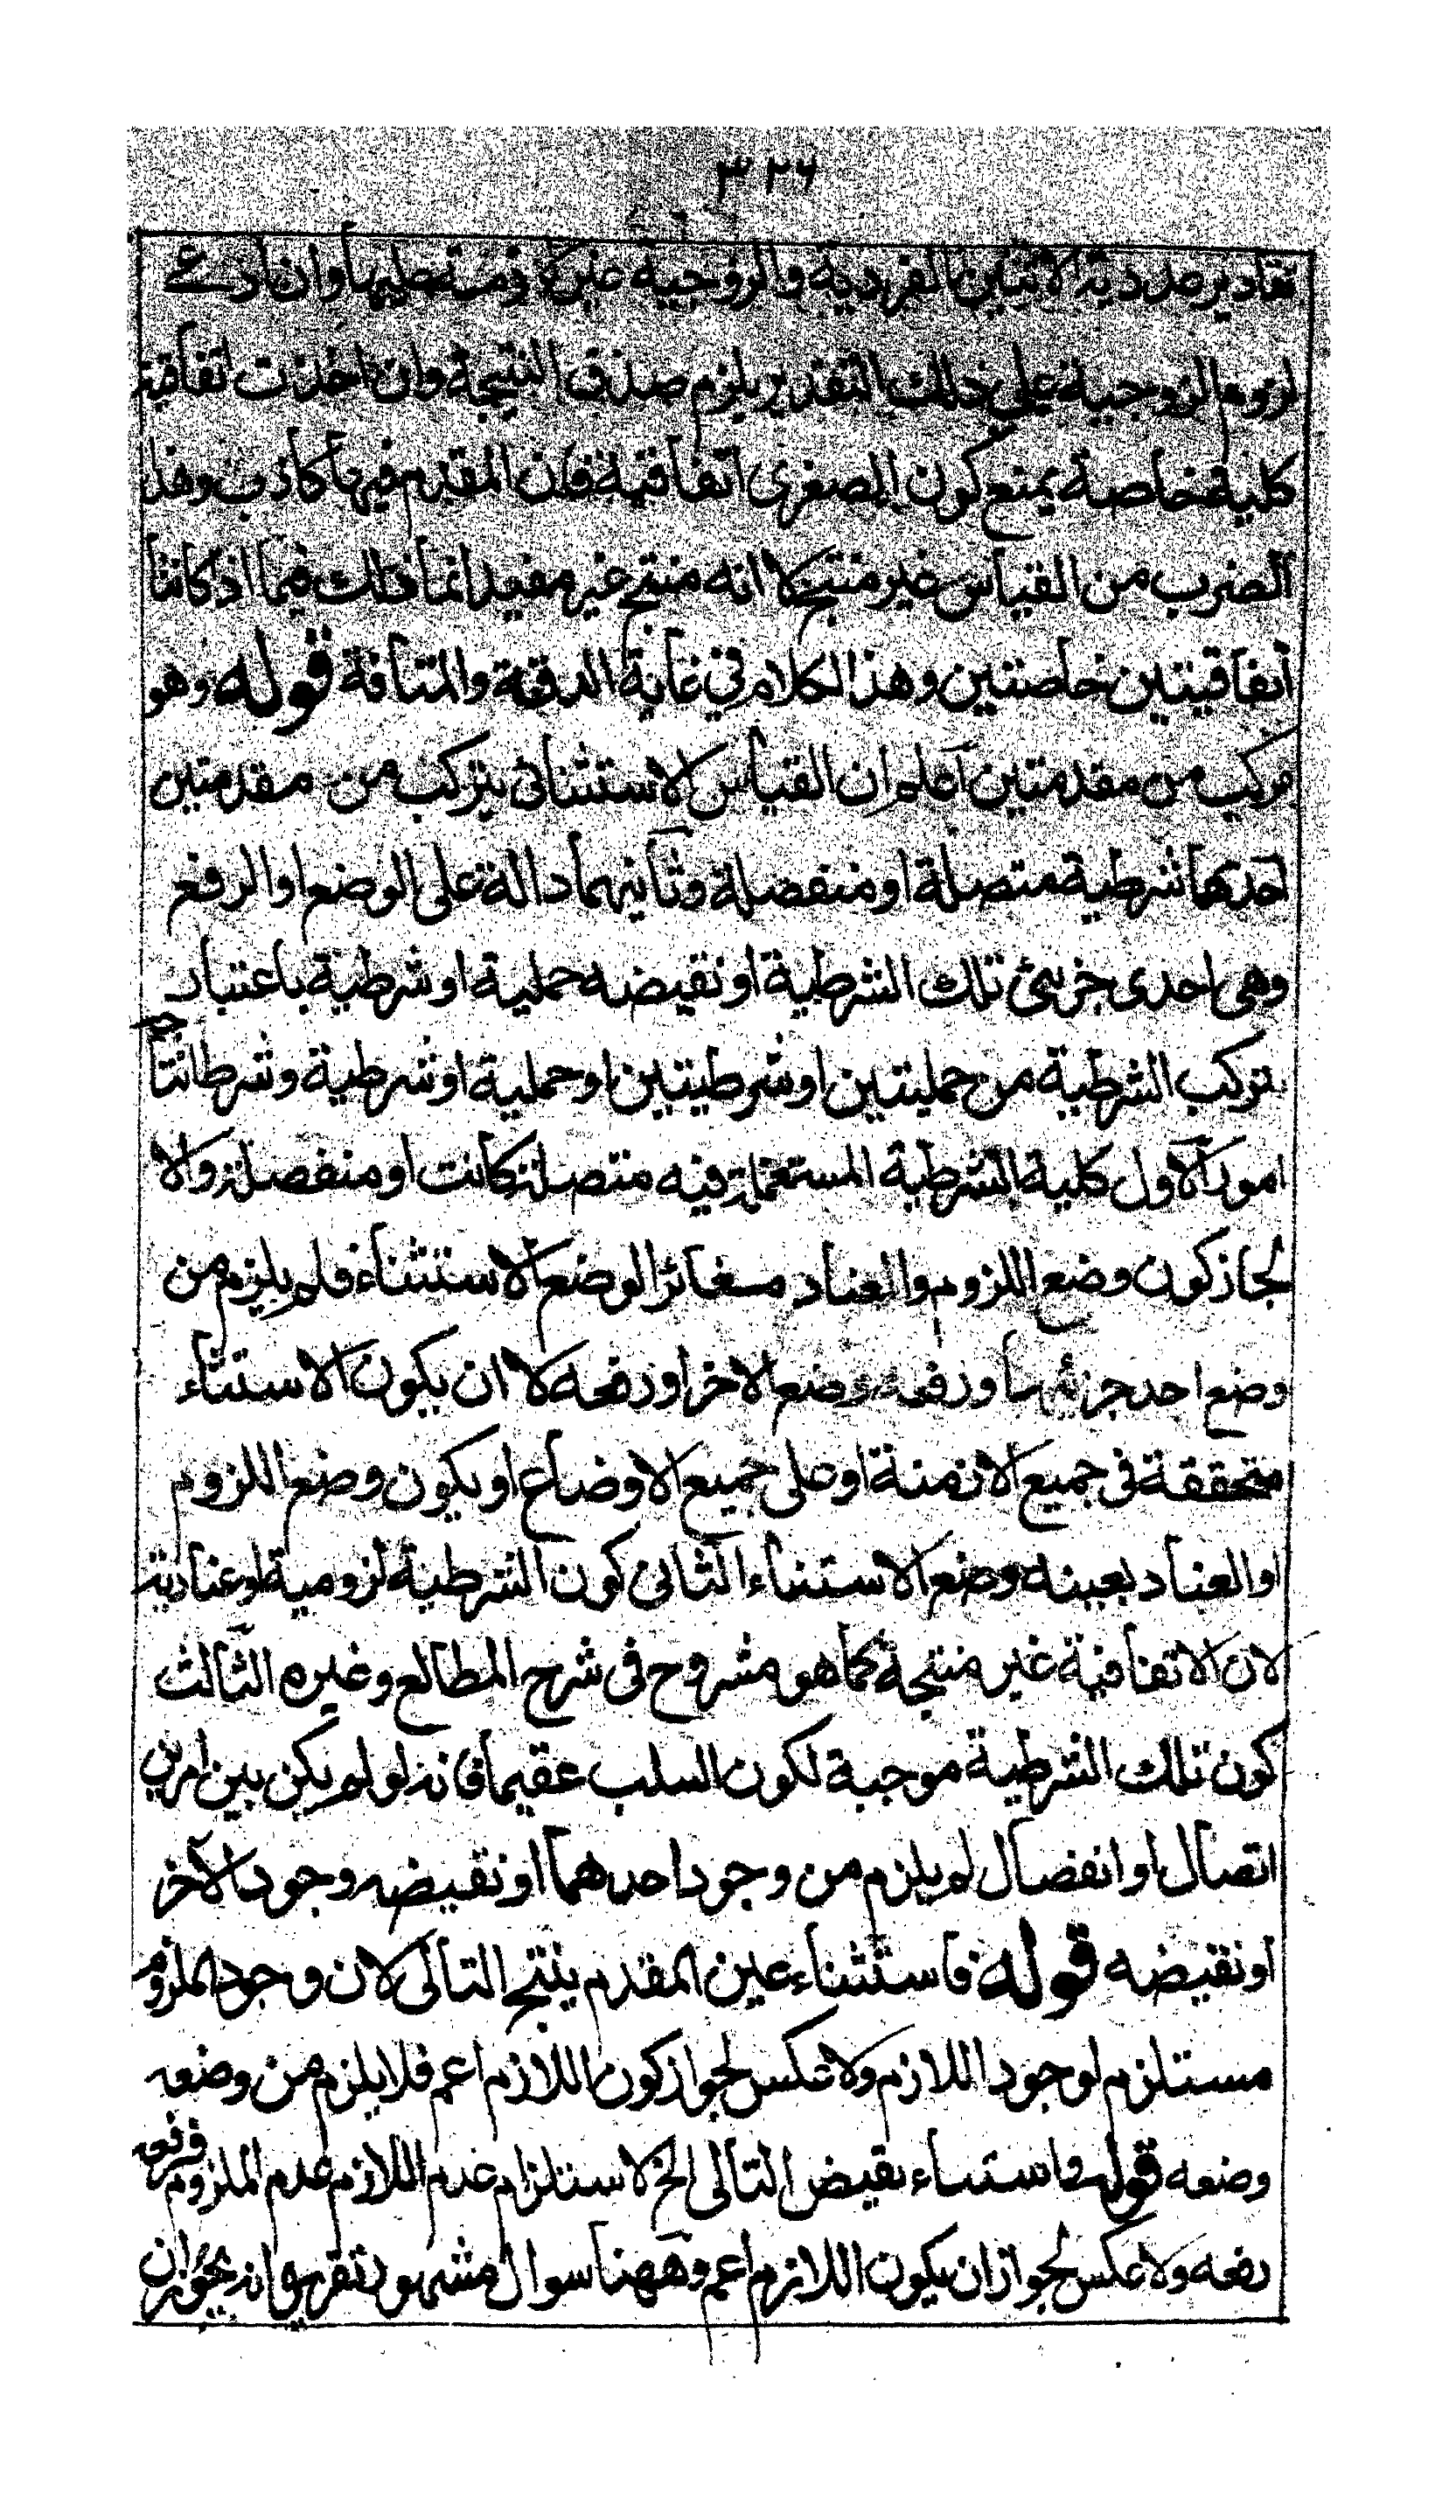 ٣٢٦
تقادير عددية الاثنين بالفردية والزوجية غير لازمة عليها وان ادعى
لزوم الزوجية على ذلك التقدير يلزم صدق النتيجة وان اخذت اتفاقية
كلية خاصة يمنع كون الصغرى اتفاقية فان المقدم فيها كاذب وهذا
الضرب من القياس غير منتج لا انه منتج غير مفيد انما ذلك فيما اذ كانتا
اتفاقيتين خاصتين وهذا الكلام في غاية الدقة والمتانة قوله وهو
مركب من مقدمتين اعلم ان القياس الاستثنائي يتركب من مقدمتين
احدهما شرطية متصلة او منفصلة وثانيهما دالة على الوضع او الرفع
وهي احدى جزئي تلك الشرطية او نقيضه حملية او شرطية باعتبار
تركب الشرطية من حمليتين او شرطيتين او حملية او شرطية وشرط انتاجه
امور الاول كلية الشرطية المستعملة فيه متصلة كانت او منفصلة والا
لجاز كون وضع اللزوم والعناد مغائرا لوضع الاستثناء فلم يلزم من
وضع احد جزئيها ورفعه وضع الاخر او رفعه لا ان يكون الاستثناء
متحققة في جميع الازمنة او على جميع الاوضاع او يكون وضع اللزوم
او العناد بعينه وضع الاستثناء الثاني كون الشرطية لزومية او عنادية
لان الاتفاقية غير منتجة كما هو مشروح في شرح المطالع وغيره الثالث
كون تلك الشرطية موجبة لكون السلب عقيما فانه لو لم يكن بين امرين
اتصال او انفصال لم يلزم من وجود احدهما او نقيضه وجود الآخر
او نقيضه قوله فاستثناء عين المقدم ينتج التالى لان وجود الملزوم
مستلزم لوجود اللازم ولا عكس لجواز كون اللازم اعم فلا يلزم من وضعه
وضعه قوله واستثناء نقيض التالى الخ لاستلزام عدم اللازم عدم الملزوم فرفعه
رفعه ولا عكس لجواز ان يكون اللازم اعم وههنا سوال مشهور تقريره انه يجوز ان